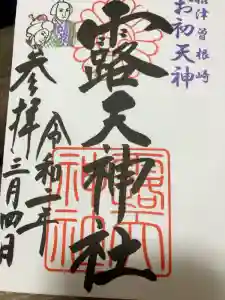 摂津曽根崎
お初天神
露天神社
露天神社
参拝
令和二年
三月四日